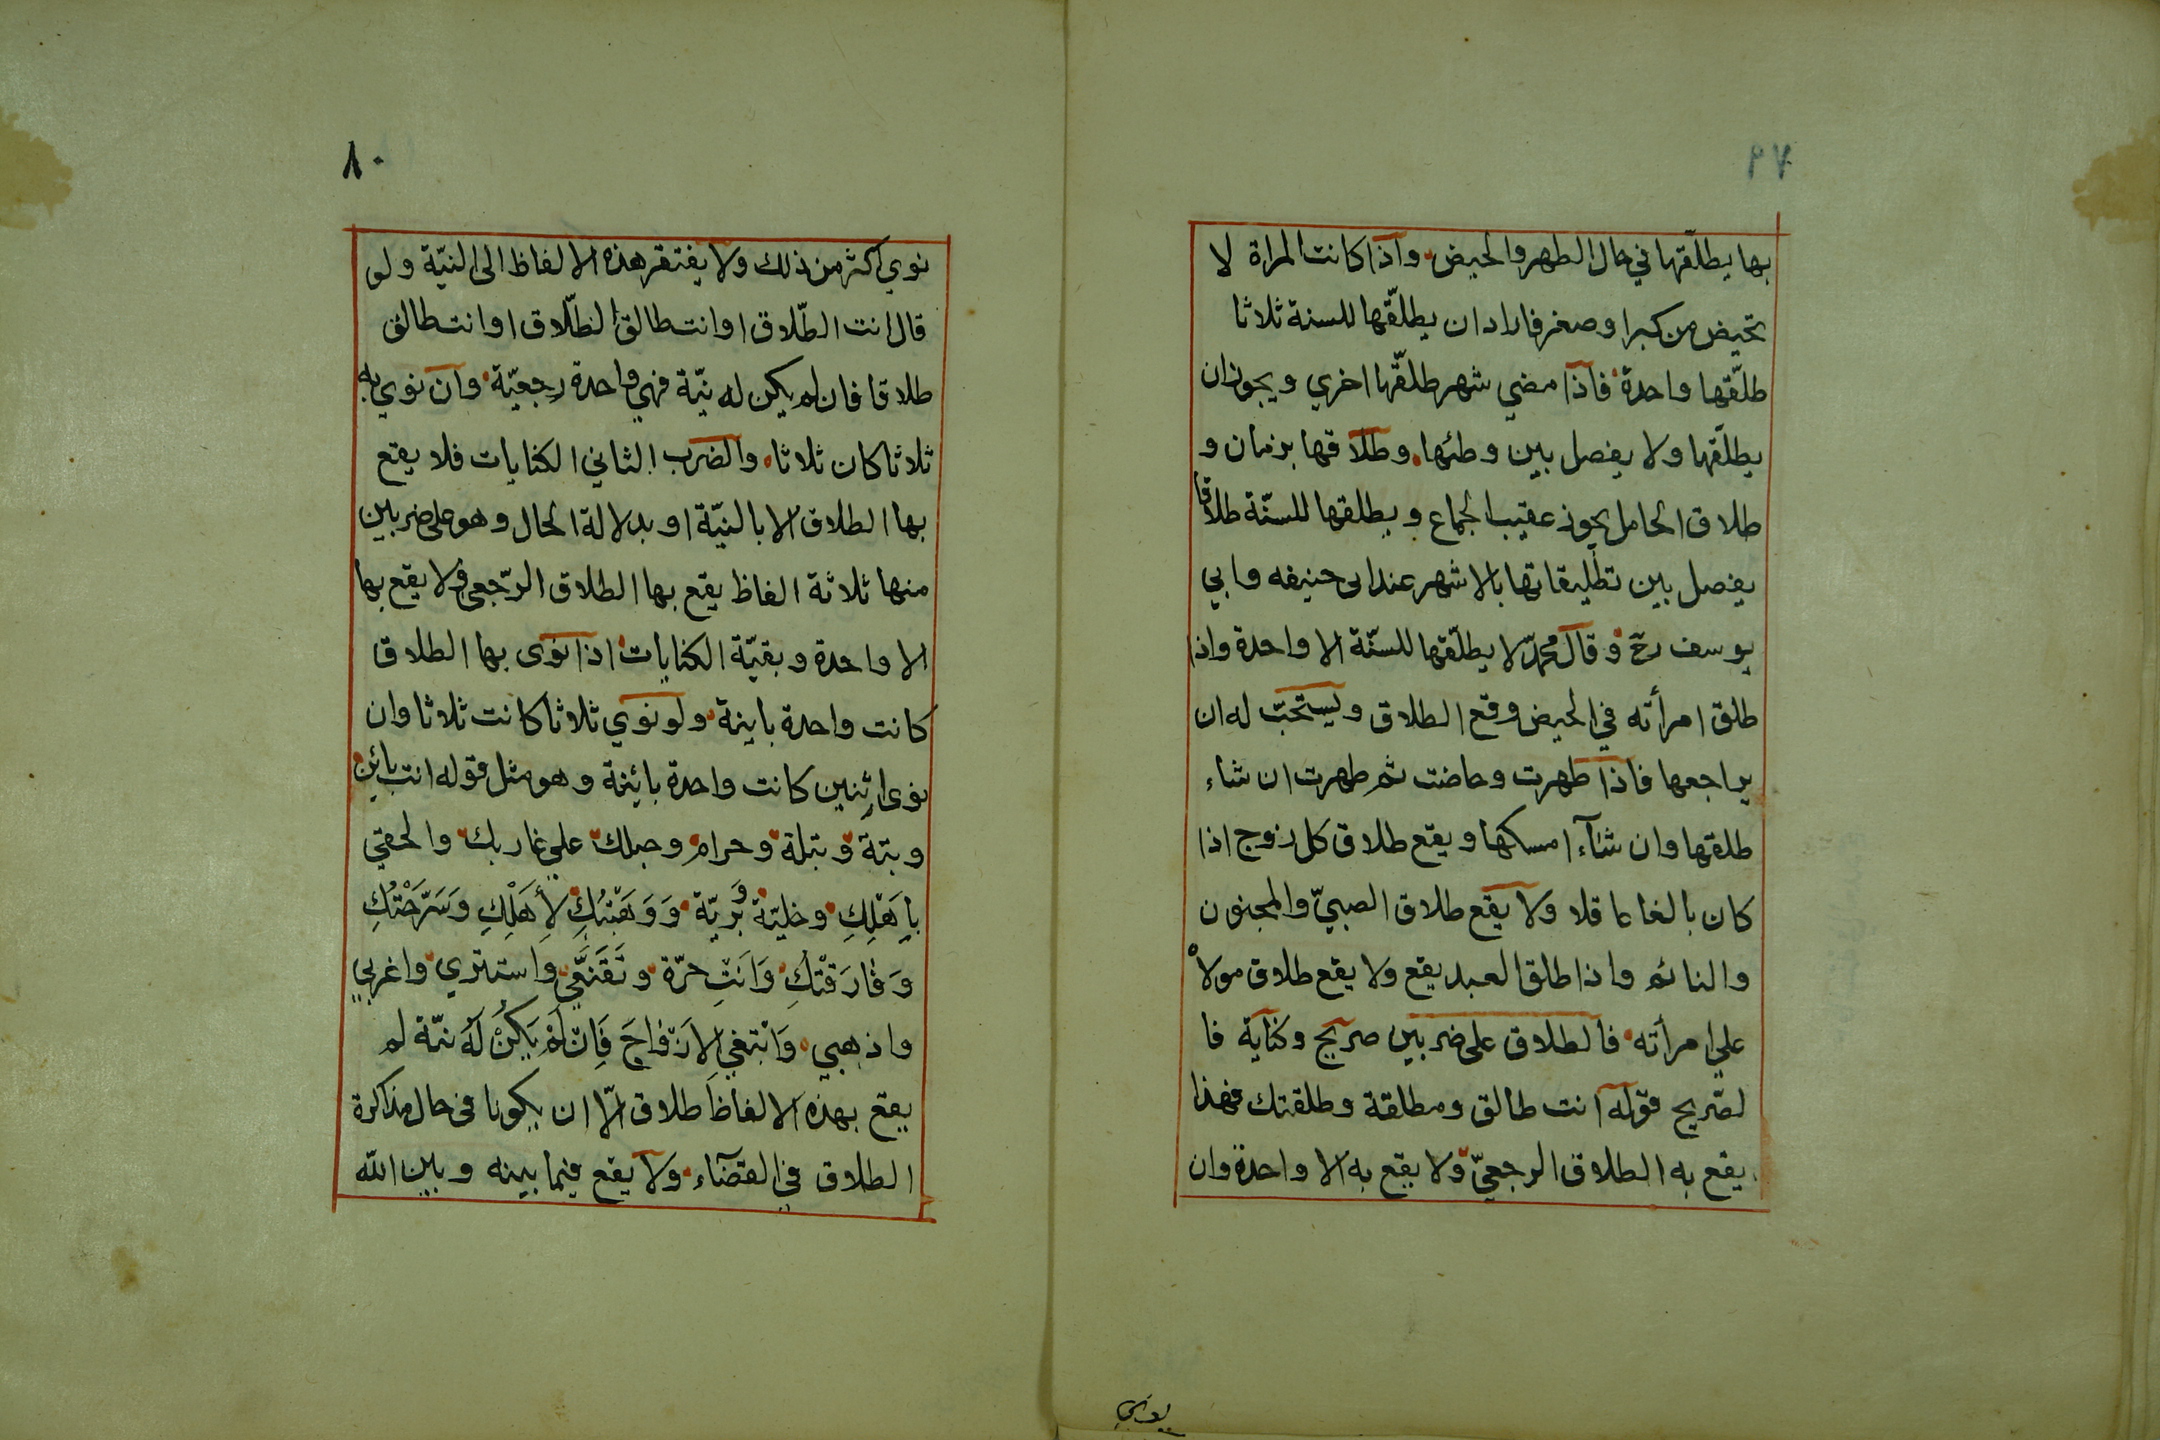 ٧٩
بها يطلّقها في حال الطهر والحيض واذا كانت المراة لا
تحيض من كبر او صغر فاراد ان يطلّقها للسنة ثلاثا
طلّقها واحدة فاذا مضي شهر طلقّها اخري ويجوز ان
يطلّقها ولا يفصل بين وطئها وطلاقها بزمان و
طلاق الحامل يجوز عقيب الجماع ويطلقها للسنّة طلاقا
يفصل بين تطليقاتها بالاشهر عند ابى حنيفه وابي
يوسف رح وقال محمدّ لا يطلّقها للسنّة الا واحدة واذا
طلق امرأته في الحيض وقع الطلاق ويستحبّ له ان
يراجعها فاذا طهرت وحاضت ثم طهرت ان شاء
طلقها وان شآء امسكها ويقع طلاق كل زوج اذا
كان بالغا عاقلا ولا يقع طلاق الصبيّ والمجنون
والنائم واذا طلق العبد يقع ولا يقع طلاق مولاه
علي امرأته فالطلاق على ضربين صريح وكناية فا
لصّريح قوله انت طالق ومطلقة وطلقتك فهذا
يقع به الطلاق الرجعيّ ولا يقع به الا واحدة وان
٨٠
نوي اكثر من ذلك ولا يفتقر هذه الالفاظ الى النيّة ولو
قال انت الطّلاق او انت طالق الطّلاق او انت طالق
طلاقا فان لم يكن له نيّة فهي واحدة رجعيّة وان نوي به
ثلاثا كان ثلاثا والضرب الثاني الكنايات فلا يقع
بها الطلاق الا بالنيّة او بدلالة الحال وهو على ضربين
منها ثلاثة الفاظ يقع بها الطلاق الرّجعي ولا يقع بها
الا واحدة وبقيّة الكنايات اذا نوى بها الطلاق
كانت واحدة باينة ولو نوي ثلاثا كانت ثلاثا وان
نوى اثنين كانت واحدة بائنة وهو مثل قوله انت بائن
وبتة وبتلة وحرام وحبلك علي غاربك والحقي
بِاَهْلِكِ وخليّة وبَريّة وَوَهَبْتُكِ لِأَهْلِكِ وَسَرَّحْتُكِ
وَفَارَقْتُكِ وَاَنْتِ حرّة وتَقَنَّعِي وَاستتري واغربي
واذهبي وَابْتَغي الاَزْوَاجَ فَاِنْ لَمْ يَكُنْ لَهُ نيّة لم
يقع بهذه الالفاظ طلاق الّا ان يكونا في حال مذاكرة
الطلاق في القضآء ولا يقع فيما بينه وبين الله